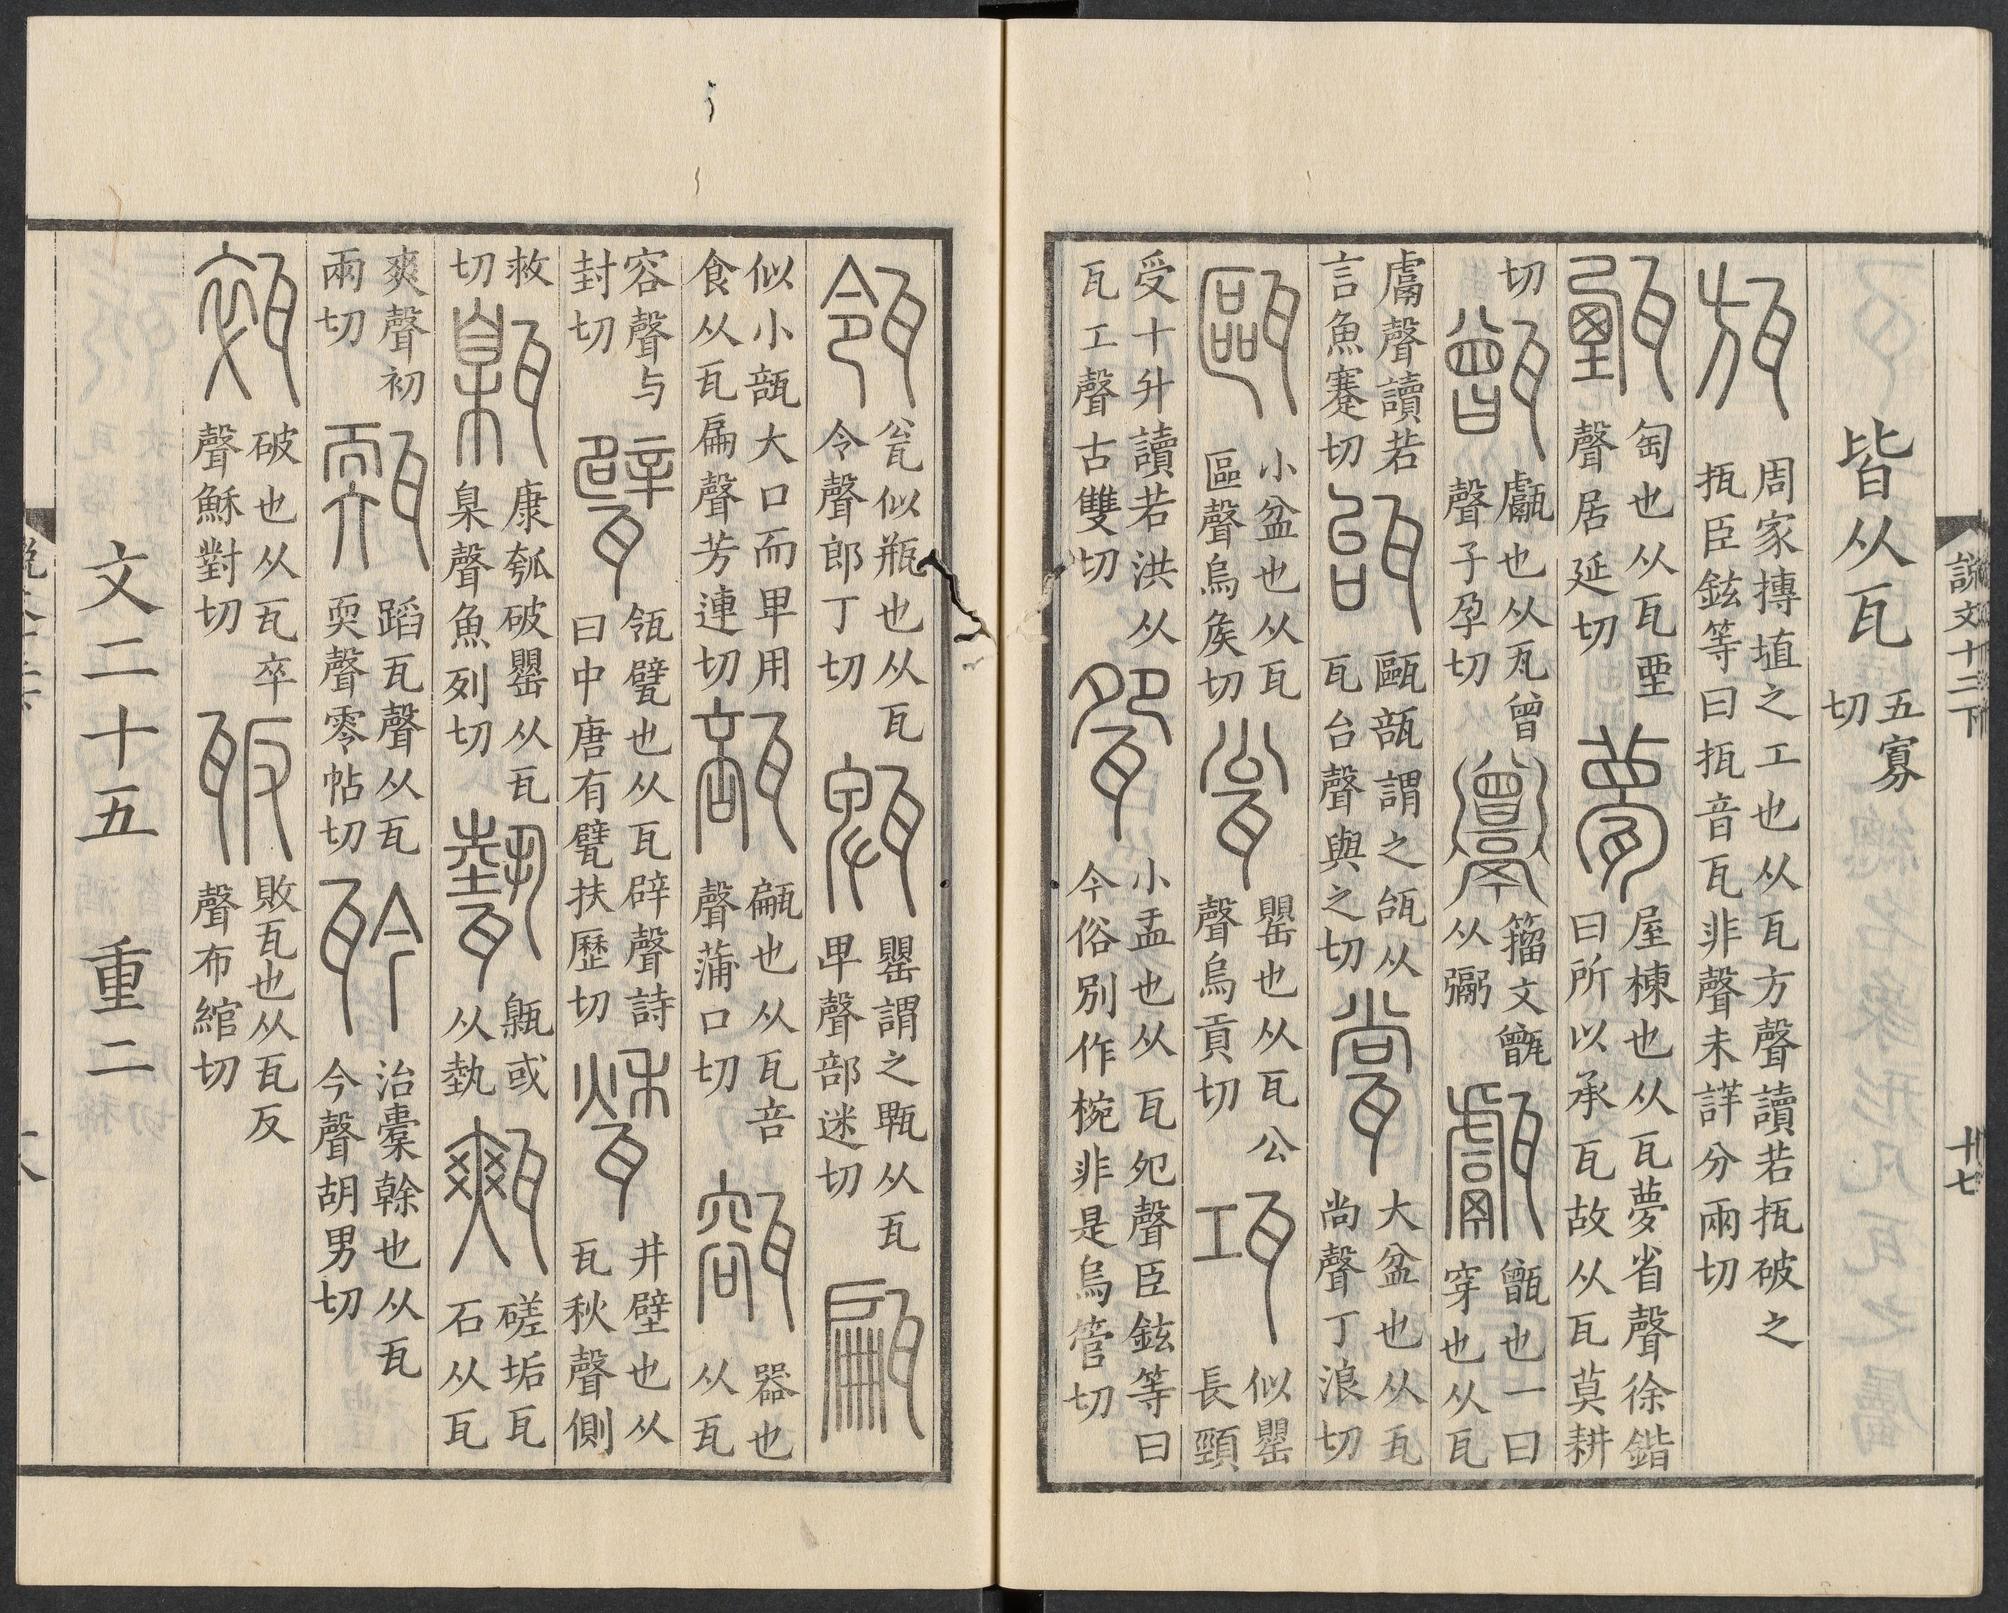 說文十二下 十七
皆从瓦 五寡切
瓬 周家摶埴之工也从瓦方聲讀若㧚破之㧚臣鉉等曰㧚音瓦非聲未詳分兩切
甄 匋也从瓦垔聲居延切 甍 屋棟也从瓦夢省聲徐鍇曰所以承瓦故从瓦莫耕
切 甑 甗也从瓦曾聲子孕切 籒文甑从䰜 甗 甑也一曰穿也从瓦
鬳聲讀若言魚蹇切 瓵 甌瓿謂之瓵从瓦台聲與之切 大盆也从瓦尚聲丁浪切
甌 小盆也从瓦區聲烏矦切 瓮 罌也从瓦公聲烏貢切 瓨 似罌長頸
受十升讀若洪从瓦工聲古雙切 小盂也从瓦夗聲臣鉉等曰今俗別作椀非是烏管切
瓴 瓮似瓶也从瓦令聲郎丁切 罌謂之甀从瓦𤰞聲部迷切 甂
似小瓿大口而𤰞用食从瓦扁聲芳連切 瓿 甂也从瓦咅聲蒲口切 器也从瓦
容聲与封切 甓 瓴甓也从瓦辟聲詩曰中唐有甓扶歷切 甃 井壁也从瓦秋聲側
救切 甈 康瓠破罌从瓦臬聲魚列切 甈或从埶 㼽 磋垢瓦石从瓦
爽聲初兩切 蹈瓦聲从瓦耎聲零帖切 治橐榦也从瓦今聲胡男切
破也从瓦卒聲穌對切 瓪 敗瓦也从瓦反聲布綰切
文二十五 重二